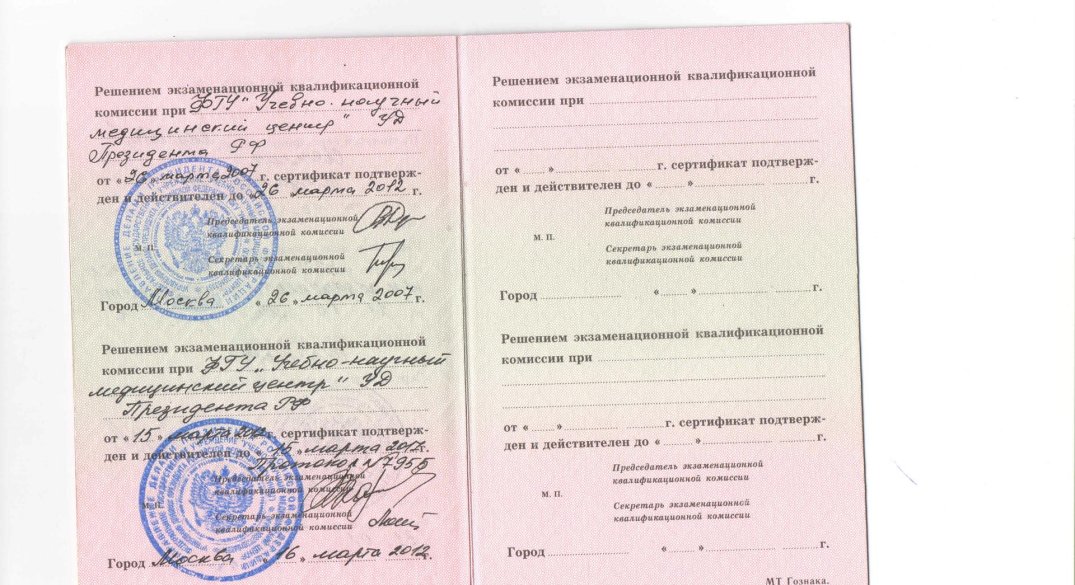 Решением экзаменационной квалификационной
комиссии при ФГУ "Учебно-научный
медицинский центр" УД
Президента РФ
от «26» марта 2007 г. сертификат подтверж-
ден и действителен до «26 марта 2012 г.
Председатель экзаменационной
квалификационной комиссии
М. П.
Секретарь экзаменационной
квалификационной комиссии
Город Москва «26» марта 2007 г.
Решением экзаменационной квалификационной
комиссии при ФГУ „Учебно-научный
медицинский центр" УД
Президента РФ
от «15» марта 2012 г. сертификат подтверж-
ден и действителен до «15» марта 2017 г.
Протокол N 7955
Председатель экзаменационной
квалификационной комиссии
М. П.
Секретарь экзаменационной
квалификационной комиссии
Город Москва «16» марта 2012 г.
Решением экзаменационной квалификационной
комиссии при
от « » г. сертификат подтверж-
ден и действителен до « » г.
Председатель экзаменационной
квалификационной комиссии
М. П.
Секретарь экзаменационной
квалификационной комиссии
Город « » г.
Решением экзаменационной квалификационной
комиссии при
от « » г. сертификат подтверж-
ден и действителен до « » г.
Председатель экзаменационной
квалификационной комиссии
М. П.
Секретарь экзаменационной
квалификационной комиссии
Город « » г.
МТ Гознака.